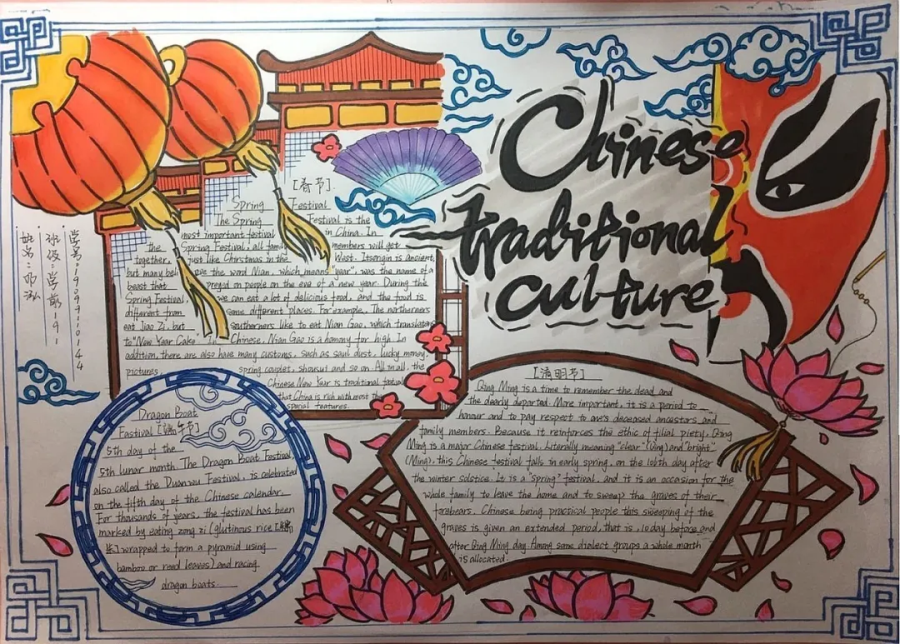 Chinese
traditional
culture
[春节]
Spring Festival
The Spring Festival is the
most important festival in China. In
the Spring Festival, all family members will get
together, just like Christmas in the West.
but many the word Nian, which means "year", was the name of a
beast that on people on the eve of a new year. During the
Spring Festival, we can eat a lot of delicious food, and the food is
different from some different places. For example, The northerners
eat Jiao Zi, but southerners like to eat Nian Gao, which translates
to "New Year Cake". In Chinese, Nian Gao is a homony for high. In
addition, there are also have many customs, such as lucky money,
pictures, spring couplet, and so on. All in all, the
Chinese New Year is traditional
that China is rich with
special features.
Dragon Boat
Eastival [端午节]
5th day of the
5th lunar month The Dragon Boat Festival,
also called the Duanwu Festival, is celebrated
on the fifth day of the Chinese calendar.
For thousands of years, the festival has been
marked by eating zong zi (glutinous rice
wrapped to form a pyramid using
bamboo or reed leaves) and racing
dragon boats.
[清明节]
Qing Ming is a time to remember the dead and
the dearly departed. More important, it is a period to
honour and to pay respect to one's deceased ancestors and
family members. Because it reinforces the ethic of filial piety, Qing
Ming is a major Chinese festival. Literally meaning "clear" (Qing) and "bright"
(Ming), this Chinese festival falls in early spring, on the 106th day after
the winter solstice. It is a "spring" festival, and it is an occasion for the
whole family to leave the home and to sweep the graves of their
forebears. Chinese being practical people this sweeping of the
graves is given an extended period, that is, 10 day before and
after Qing Ming day. Among some dialect groups a whole month
is allocated.